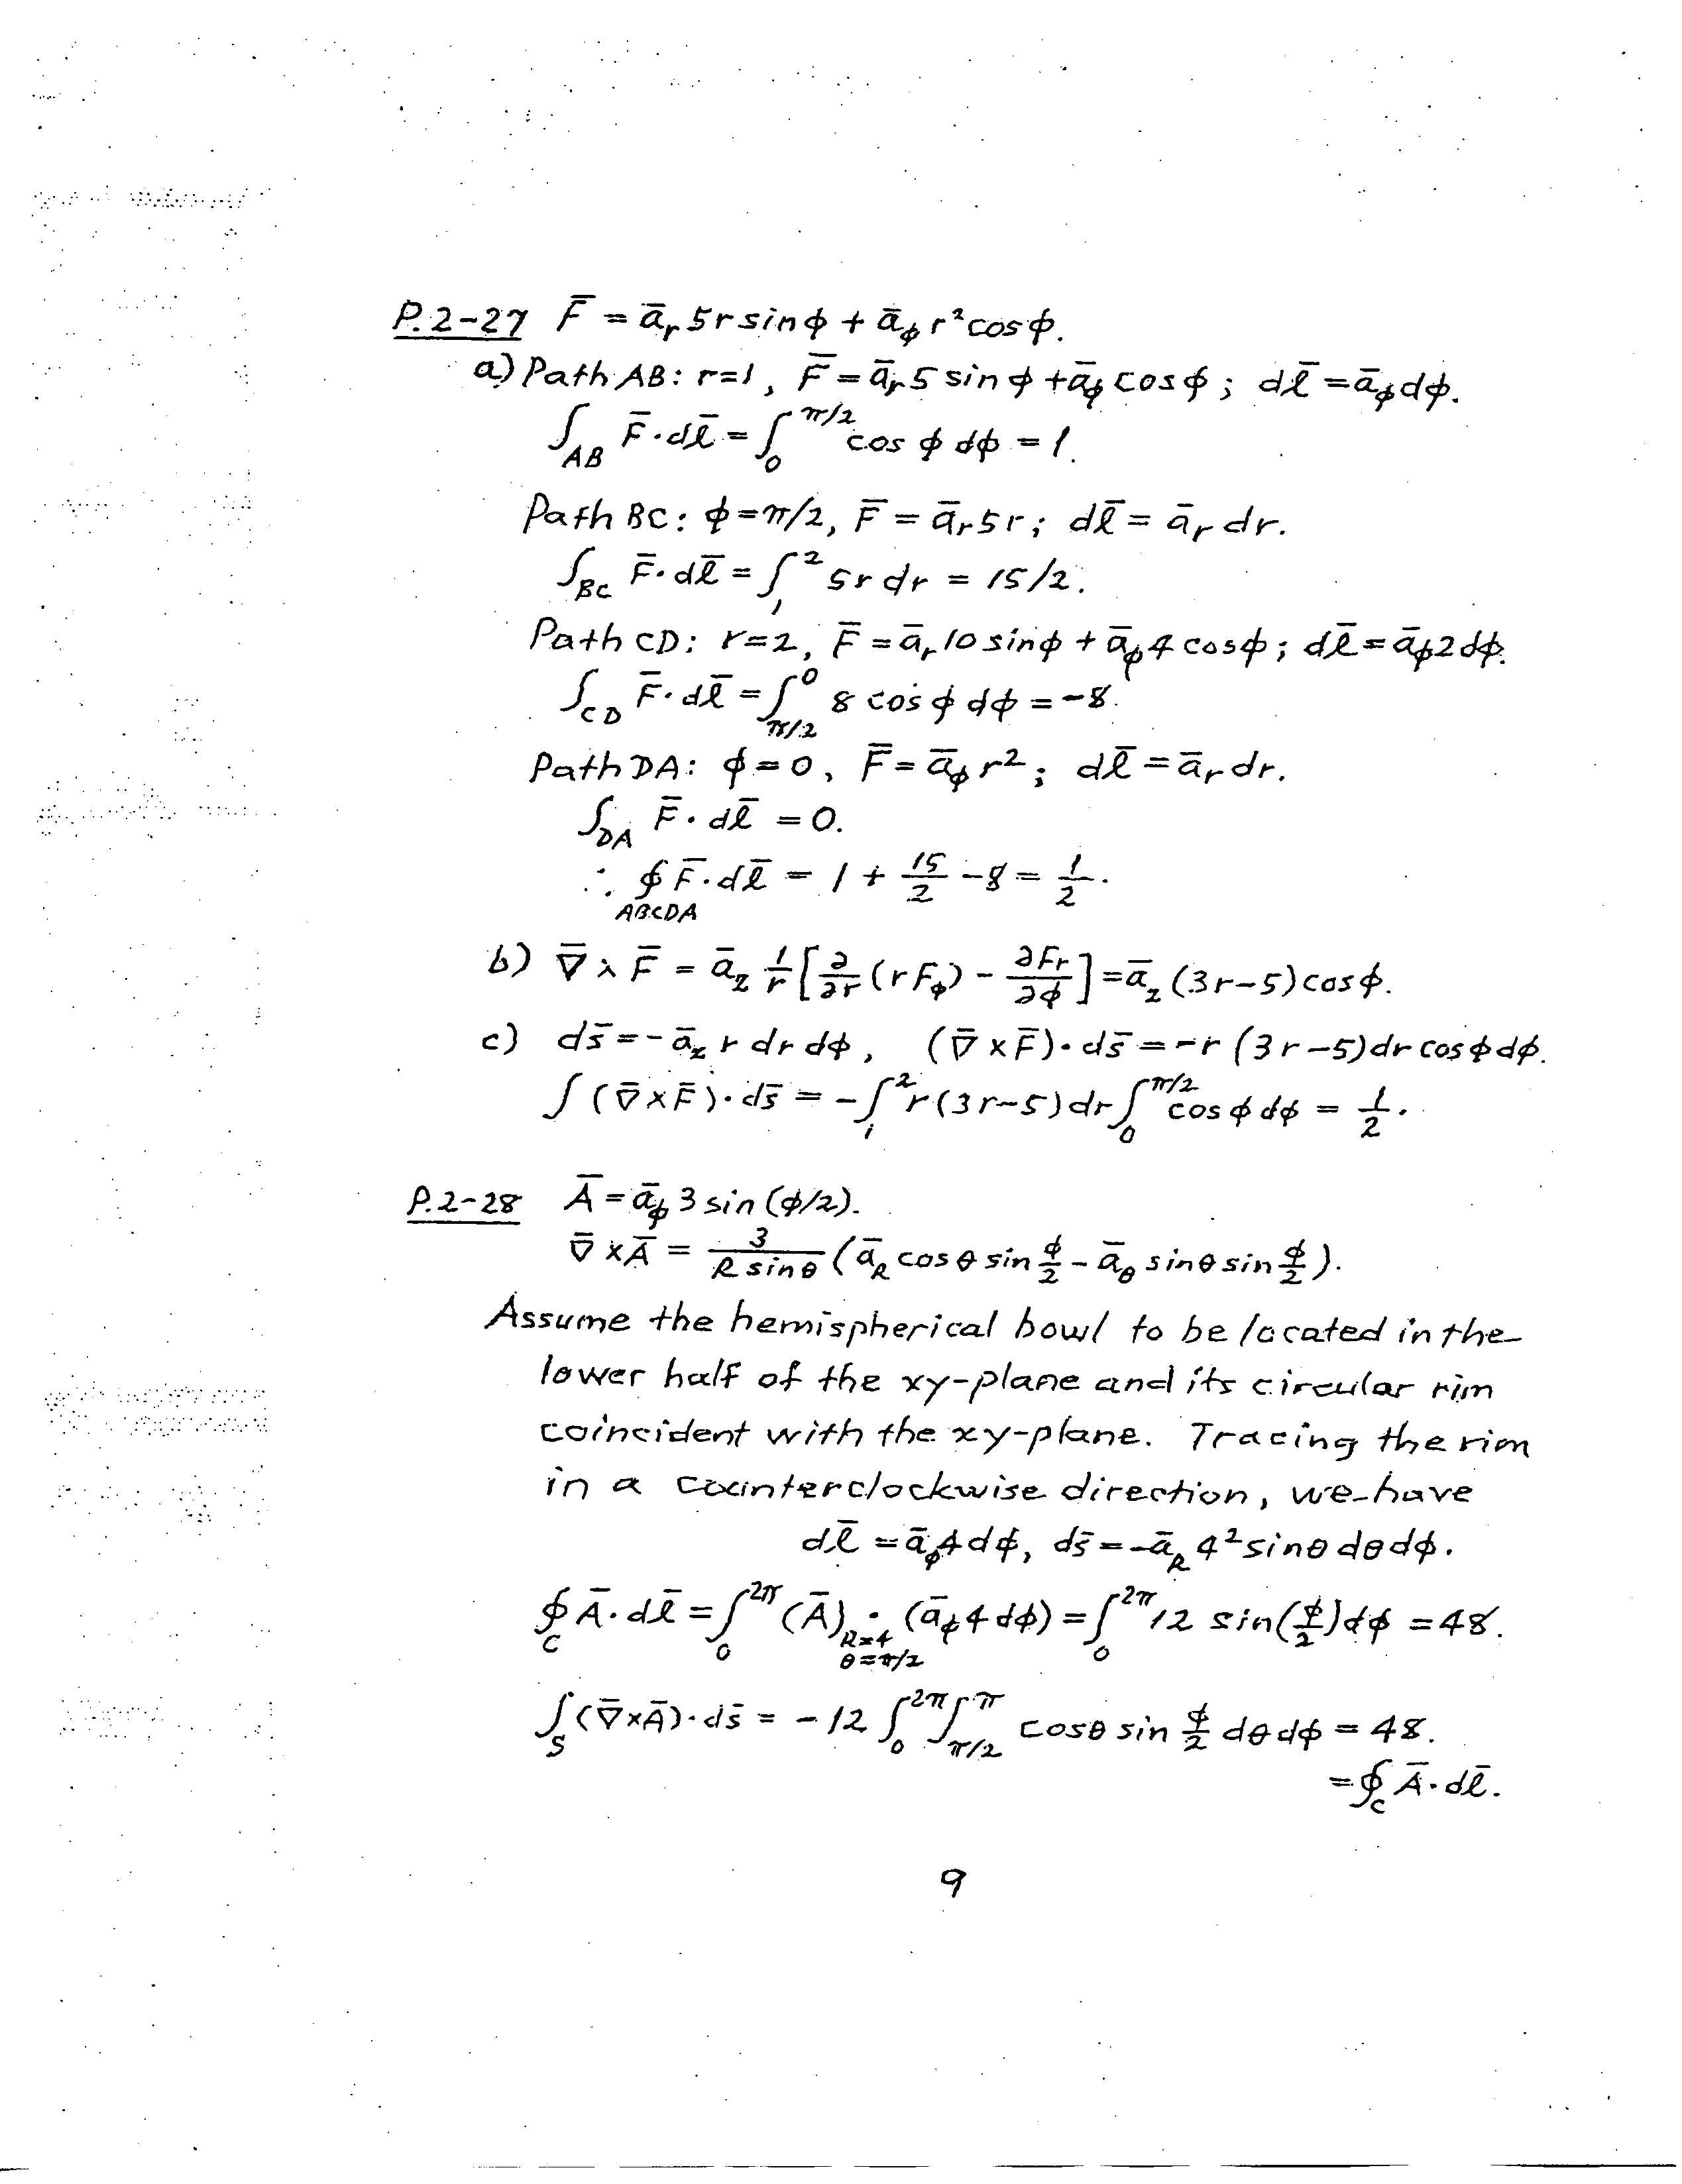 P.2-27 F̄ = ā_r 5r sin ϕ + ā_ϕ r² cos ϕ.
a) Path AB: r=1, F̄ = ā_r 5 sin ϕ + ā_ϕ cos ϕ; dl̄ = ā_ϕ dϕ.
∫_AB F̄·dl̄ = ∫_0^{π/2} cos ϕ dϕ = 1.
Path BC: ϕ=π/2, F̄ = ā_r 5r; dl̄ = ā_r dr.
∫_BC F̄·dl̄ = ∫_1^2 5r dr = 15/2.
Path CD: r=2, F̄ = ā_r 10 sin ϕ + ā_ϕ 4 cos ϕ; dl̄ = ā_ϕ 2 dϕ.
∫_CD F̄·dl̄ = ∫_{π/2}^0 8 cos ϕ dϕ = -8.
Path DA: ϕ=0, F̄ = ā_ϕ r²; dl̄ = ā_r dr.
∫_DA F̄·dl̄ = 0.
∴ ∮_ABCDA F̄·dl̄ = 1 + 15/2 - 8 = 1/2.
b) ∇̄ × F̄ = ā_z 1/r [∂/∂r (r F_ϕ) - ∂F_r/∂ϕ] = ā_z (3r-5) cos ϕ.
c) ds̄ = -ā_z r dr dϕ, (∇̄ × F̄)·ds̄ = -r (3r-5) dr cos ϕ dϕ.
∫ (∇̄ × F̄)·ds̄ = -∫_1^2 r(3r-5) dr ∫_0^{π/2} cos ϕ dϕ = 1/2.
P.2-28 Ā = ā_ϕ 3 sin (ϕ/2).
∇̄ × Ā = 3/(R sin θ) (ā_R cos θ sin ϕ/2 - ā_θ sin θ sin ϕ/2).
Assume the hemispherical bowl to be located in the
lower half of the xy-plane and its circular rim
coincident with the xy-plane. Tracing the rim
in a counterclockwise direction, we have
dl̄ = ā_ϕ 4 dϕ, ds̄ = -ā_R 4² sin θ dθ dϕ.
∮_C Ā·dl̄ = ∫_0^{2π} (Ā)_{R=4, θ=π/2} · (ā_ϕ 4 dϕ) = ∫_0^{2π} 12 sin(ϕ/2) dϕ = 48.
∫_S (∇̄ × Ā)·ds̄ = -12 ∫_0^{2π} ∫_{π/2}^π cos θ sin ϕ/2 dθ dϕ = 48.
= ∮_C Ā·dl̄.
9